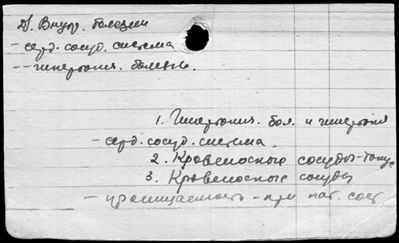 Д. Внутр. болезни
– серд. сосуд. система
–– гипертонич. болезнь.
1. Гипертонич. бол. и гипертония
– серд. сосуд. система.
2. Кровеносные сосуды – тонус
3. Кровеносные сосуды
– проницаемость – при пат. сост.